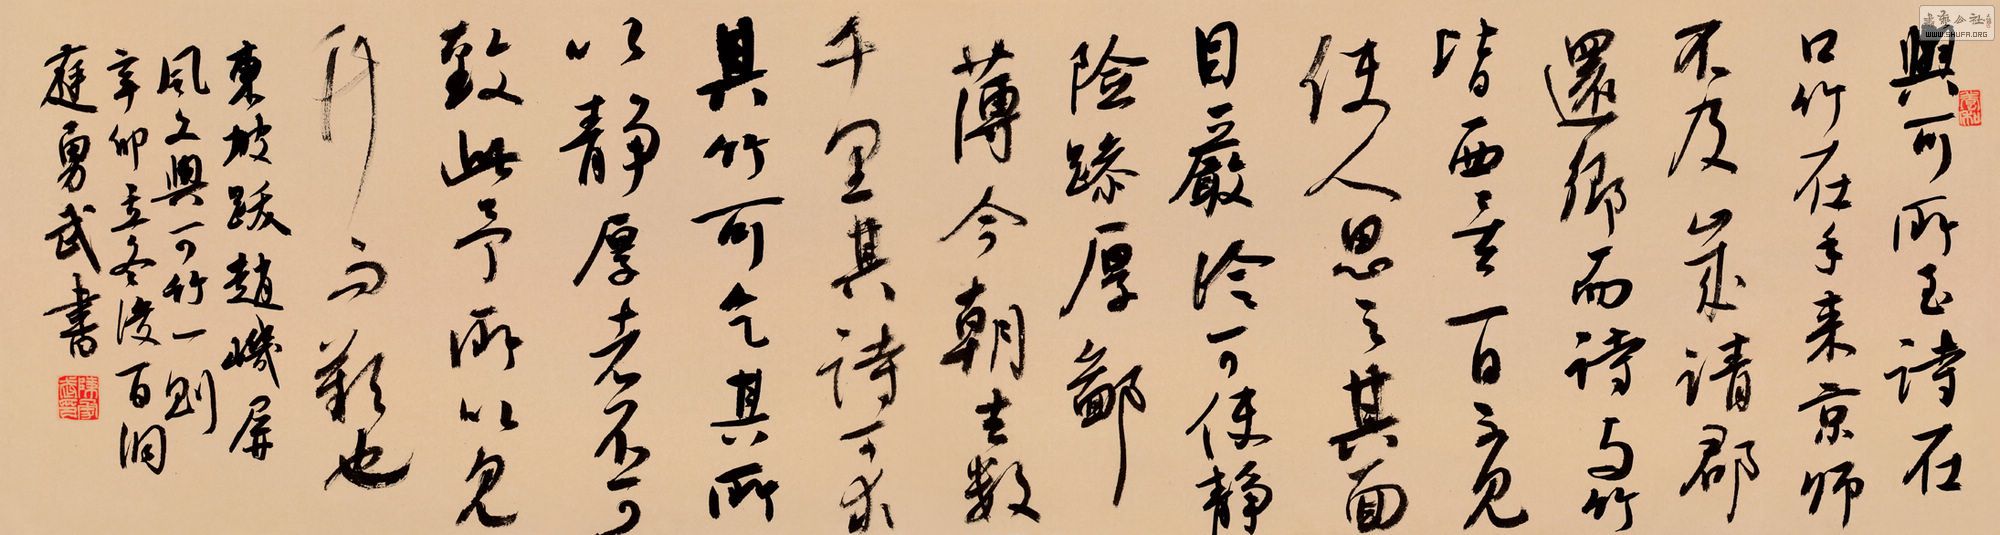 與可所至詩在
口竹在手来京師
不及歲請郡
還鄉而詩与竹
皆西矣一日不見
使人思之其面
目嚴冷可使静
險躁厚鄙
薄今朝去数
千里其詩可求
其竹可乞其所
以静厚者不可
致此予所以見
竹而歎也
東坡跋趙屏
風文與可竹一則
辛卯立冬後百洞
勇武書
WWW.SHUFA.ORG